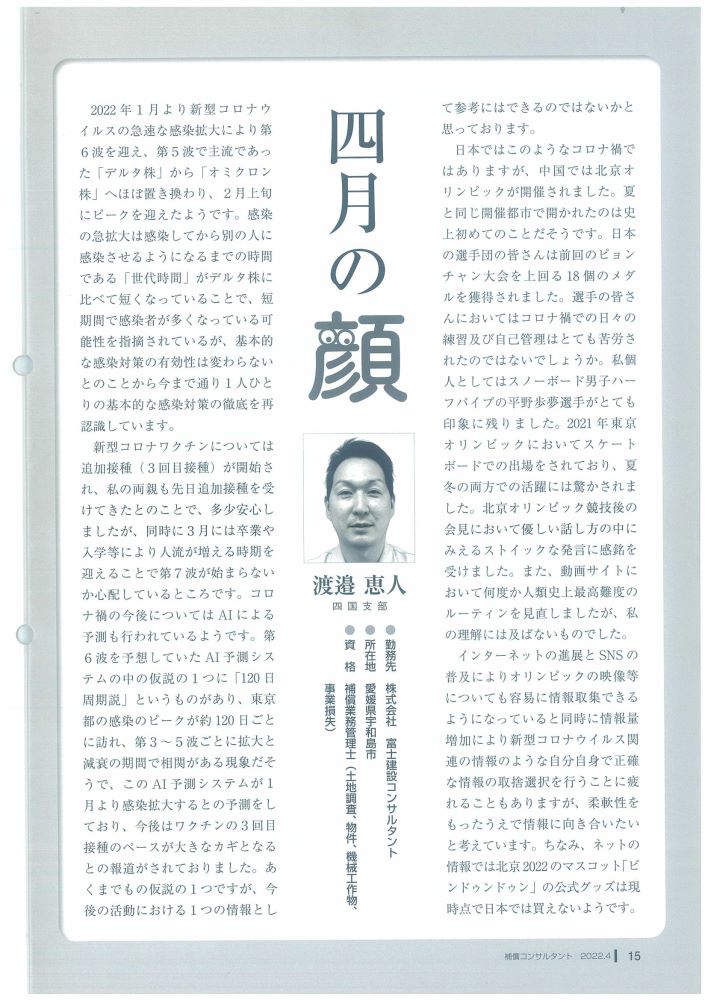 四月の顔
渡邉 恵人
四国支部
●勤務先 株式会社 富士建設コンサルタント
●所在地 愛媛県宇和島市
●資 格 補償業務管理士（土地調査、物件、機械工作物、
事業損失）
2022年１月より新型コロナウ
イルスの急速な感染拡大により第
６波を迎え、第５波で主流であっ
た「デルタ株」から「オミクロン
株」へほぼ置き換わり、２月上旬
にピークを迎えたようです。感染
の急拡大は感染してから別の人に
感染させるようになるまでの時間
である「世代時間」がデルタ株に
比べて短くなっていることで、短
期間で感染者が多くなっている可
能性を指摘されているが、基本的
な感染対策の有効性は変わらない
とのことから今まで通り１人ひと
りの基本的な感染対策の徹底を再
認識しています。
新型コロナワクチンについては
追加接種（３回目接種）が開始さ
れ、私の両親も先日追加接種を受
けてきたとのことで、多少安心し
ましたが、同時に３月には卒業や
入学等により人流が増える時期を
迎えることで第７波が始まらない
か心配しているところです。コロ
ナ禍の今後についてはAIによる
予測も行われているようです。第
６波を予想していたAI予測シス
テムの中の仮説の１つに「120日
周期説」というものがあり、東京
都の感染のピークが約120日ごと
に訪れ、第３～５波ごとに拡大と
減衰の期間で相関がある現象だそ
うで、このAI予測システムが１
月より感染拡大するとの予測をし
ており、今後はワクチンの３回目
接種のペースが大きなカギとなる
との報道がされておりました。あ
くまでもの仮説の１つですが、今
後の活動における１つの情報とし
て参考にはできるのではないかと
思っております。
日本ではこのようなコロナ禍で
はありますが、中国では北京オ
リンピックが開催されました。夏
と同じ開催都市で開かれたのは史
上初めてのことだそうです。日本
の選手団の皆さんは前回のピョン
チャン大会を上回る18個のメダ
ルを獲得されました。選手の皆さ
んにおいてはコロナ禍での日々の
練習及び自己管理はとても苦労さ
れたのではないでしょうか。私個
人としてはスノーボード男子ハー
フパイプの平野歩夢選手がとても
印象に残りました。2021年東京
オリンピックにおいてスケート
ボードでの出場をされており、夏
冬の両方での活躍には驚かされま
した。北京オリンピック競技後の
会見において優しい話し方の中に
みえるストイックな発言に感銘を
受けました。また、動画サイトに
おいて何度か人類史上最高難度の
ルーティンを見直しましたが、私
の理解には及ばないものでした。
インターネットの進展とSNSの
普及によりオリンピックの映像等
についても容易に情報収集できる
ようになっていると同時に情報量
増加により新型コロナウイルス関
連の情報のような自分自身で正確
な情報の取捨選択を行うことに疲
れることもありますが、柔軟性を
もったうえで情報に向き合いたい
と考えています。ちなみ、ネットの
情報では北京2022のマスコット「ビ
ンドゥンドゥン」の公式グッズは現
時点で日本では買えないようです。
補償コンサルタント 2022.4 15